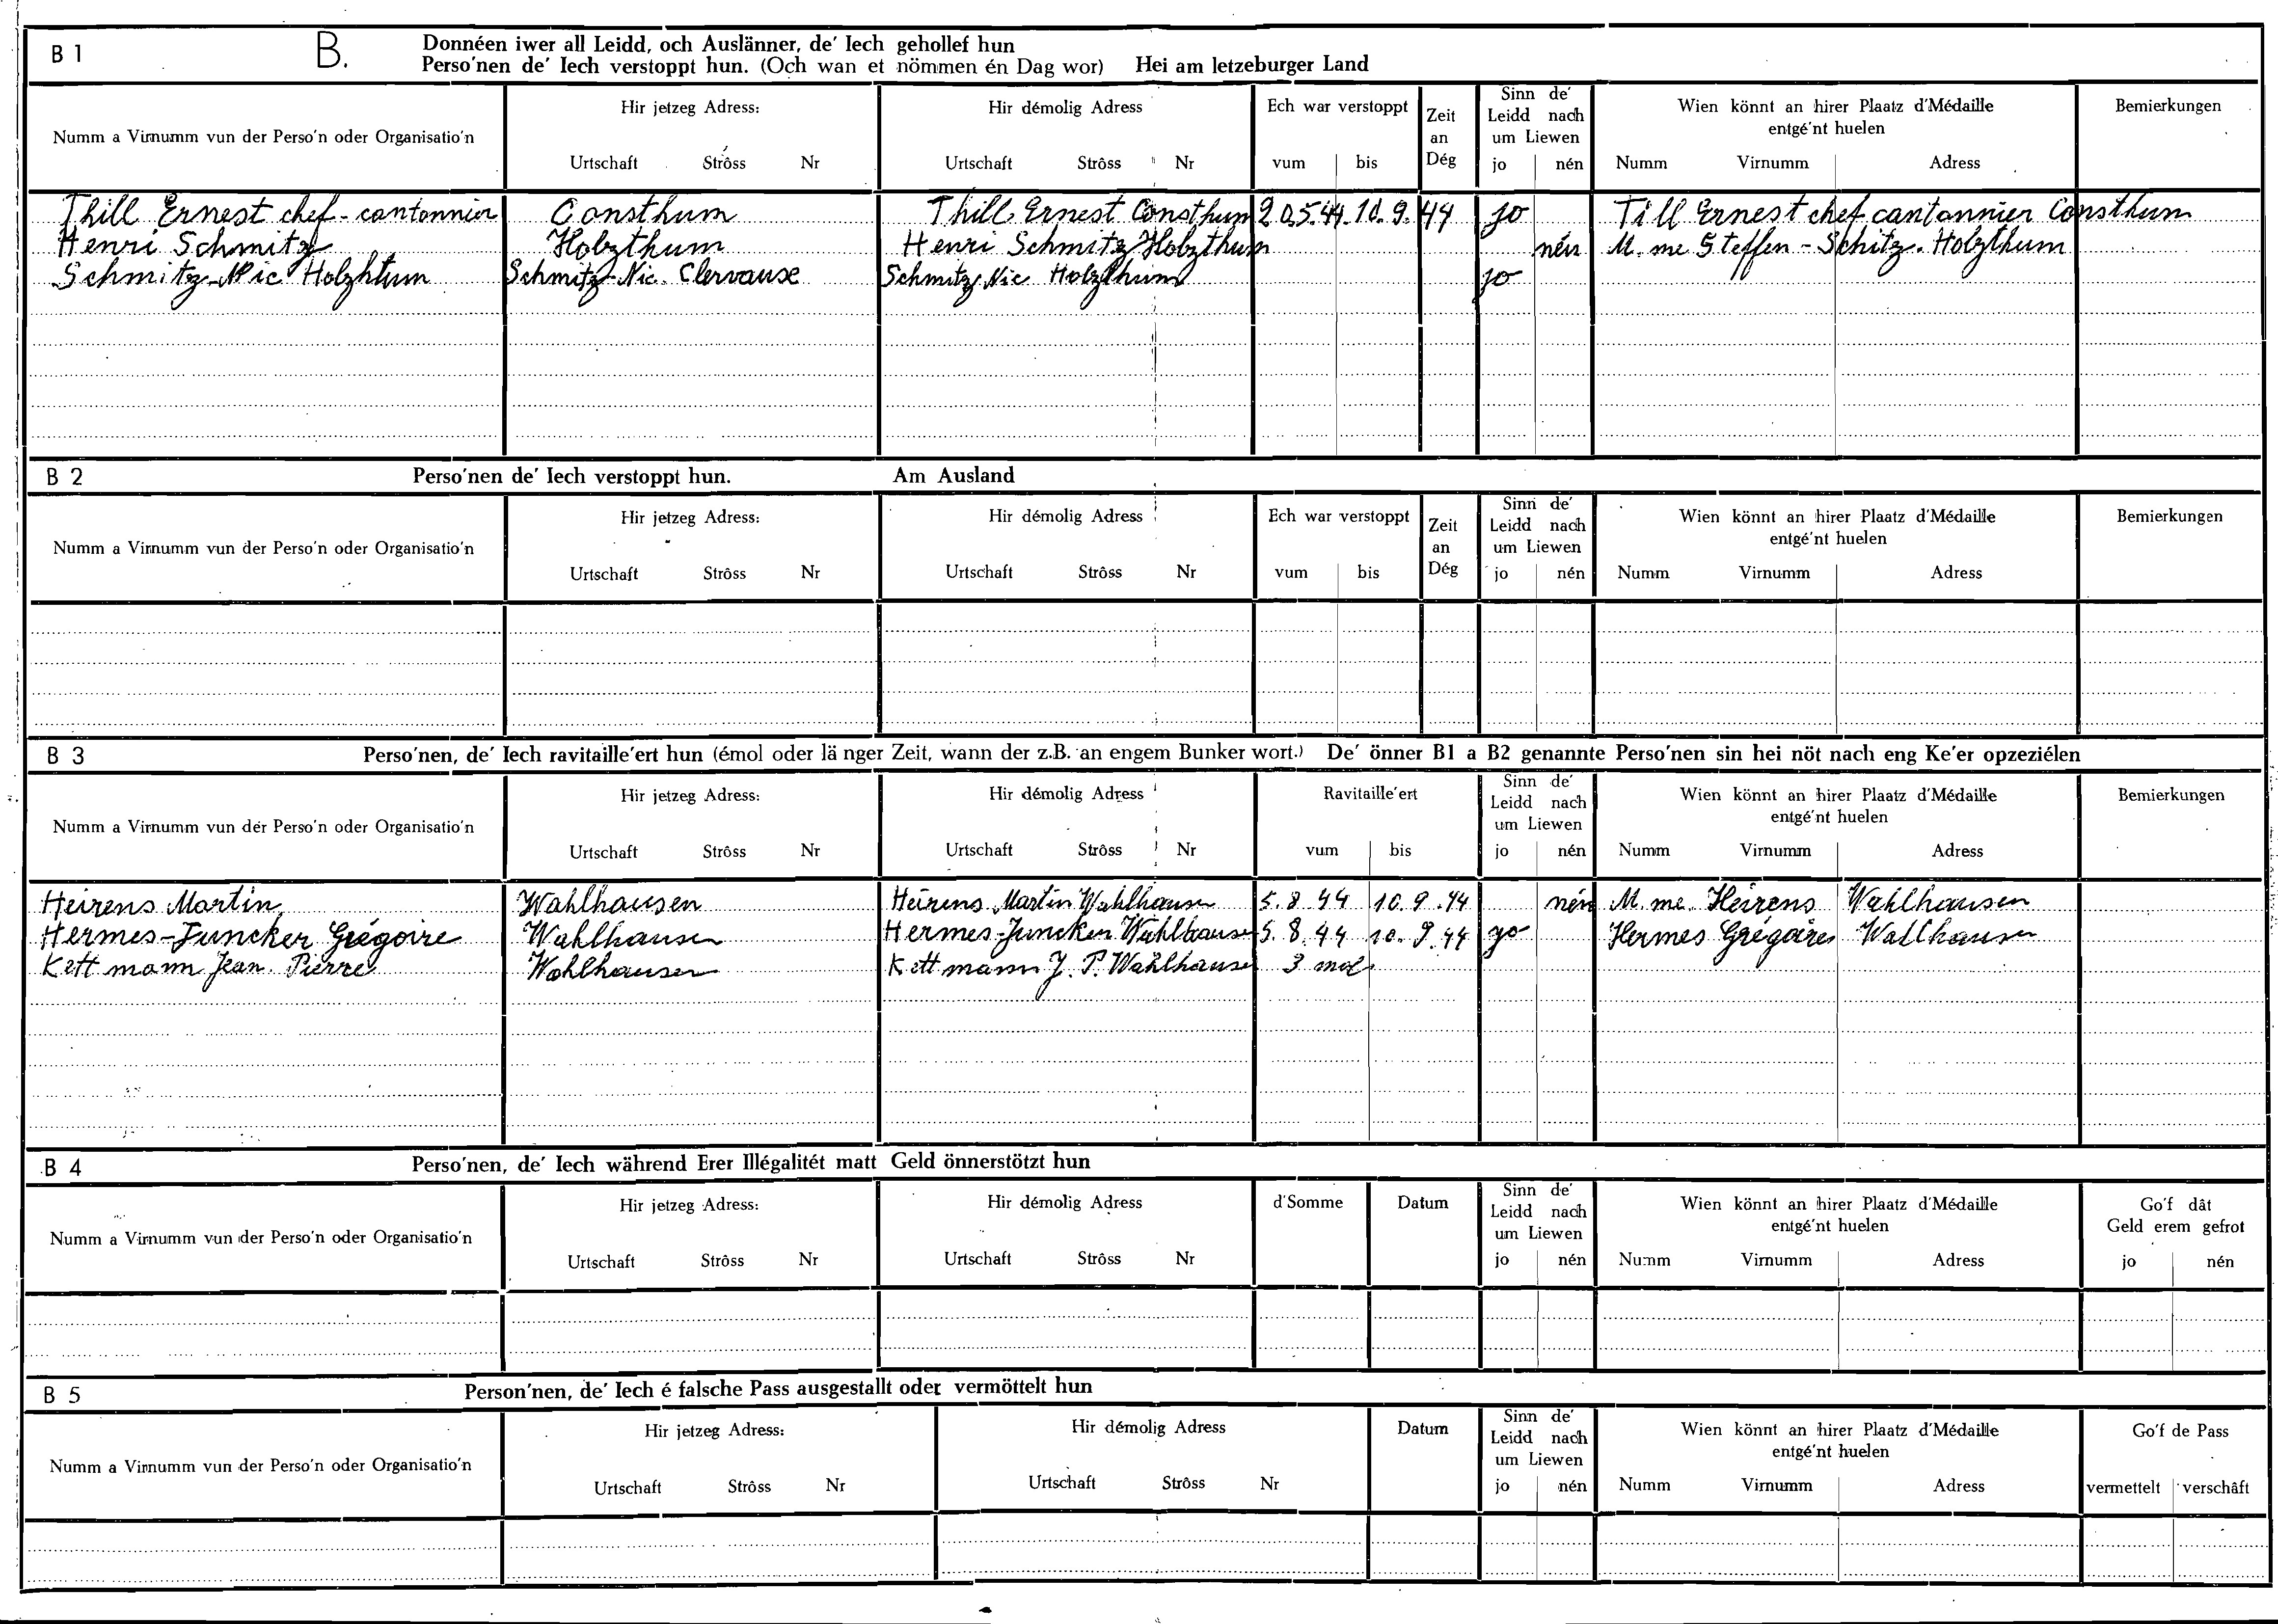 B 1 B. Donnéen iwer all Leidd, och Auslänner, de' Iech gehollef hun
Perso'nen de' Iech verstoppt hun. (Och wan et nömmen én Dag wor) Hei am letzeburger Land
Numm a Virnumm vun der Perso'n oder Organisatio'n
Hir jetzeg Adress:
Urtschaft Strôss Nr
Hir démolig Adress
Urtschaft Strôss Nr
Ech war verstoppt
vum bis
Zeit
an
Dég
Sinn de'
Leidd nach
um Liewen
jo nén
Wien könnt an hirer Plaatz d'Médaille
entgé'nt huelen
Numm Virnumm Adress
Bemierkungen
Thill Ernest chef-cantonnier Consthum Thill Ernest Consthum 20.5.44. 10.9.44 jo Till Ernest chef cantonnier Consthum
Henri Schmitz Holzthum Henri Schmitz Holzthum nén M.me Steffen-Schitz. Holzthum
Schmitz-Nic Holzhtum Schmitz-Nic. Clervause Schmitz Nic Holzthum jo
B 2 Perso'nen de' Iech verstoppt hun. Am Ausland
Numm a Virnumm vun der Perso'n oder Organisatio'n
Hir jetzeg Adress:
Urtschaft Strôss Nr
Hir démolig Adress
Urtschaft Strôss Nr
Ech war verstoppt
vum bis
Zeit
an
Dég
Sinn de'
Leidd nach
um Liewen
jo nén
Wien könnt an hirer Plaatz d'Médaille
entgé'nt huelen
Numm Virnumm Adress
Bemierkungen
B 3 Perso'nen, de' Iech ravitaille'ert hun (émol oder länger Zeit, wann der z.B. an engem Bunker wort.) De' önner B1 a B2 genannte Perso'nen sin hei nöt nach eng Ke'er opzeziélen
Numm a Virnumm vun der Perso'n oder Organisatio'n
Hir jetzeg Adress:
Urtschaft Strôss Nr
Hir démolig Adress
Urtschaft Strôss Nr
Ravitaille'ert
vum bis
Sinn de'
Leidd nach
um Liewen
jo nén
Wien könnt an hirer Plaatz d'Médaille
entgé'nt huelen
Numm Virnumm Adress
Bemierkungen
Heirens Martin Wahlhausen Heirens Martin Wahlhausen 5.8.44 10.9.44 nén M.me. Heirens Wahlhausen
Hermes-Juncker Grégoire Wahlhausen Hermes-Juncker Wahlhausen 5.8.44 10.9.44 jo Hermes Grégoire Wallhausen
Kettmann Jean. Pierre Wahlhausen Kettmann J.P. Wahlhausen 3 mol
B 4 Perso'nen, de' Iech während Erer Illégalitét matt Geld önnerstötzt hun
Numm a Virnumm vun der Perso'n oder Organisatio'n
Hir jetzeg Adress:
Urtschaft Strôss Nr
Hir démolig Adress
Urtschaft Strôss Nr
d'Somme
Datum
Sinn de'
Leidd nach
um Liewen
jo nén
Wien könnt an hirer Plaatz d'Médaille
entgé'nt huelen
Numm Virnumm Adress
Go'f dât
Geld erem gefrot
jo nén
B 5 Person'nen, de' Iech é falsche Pass ausgestallt oder vermöttelt hun
Numm a Virnumm vun der Perso'n oder Organisatio'n
Hir jetzeg Adress:
Urtschaft Strôss Nr
Hir démolig Adress
Urtschaft Strôss Nr
Datum
Sinn de'
Leidd nach
um Liewen
jo nén
Wien könnt an hirer Plaatz d'Médaille
entgé'nt huelen
Numm Virnumm Adress
Go'f de Pass
vermettelt verschâft